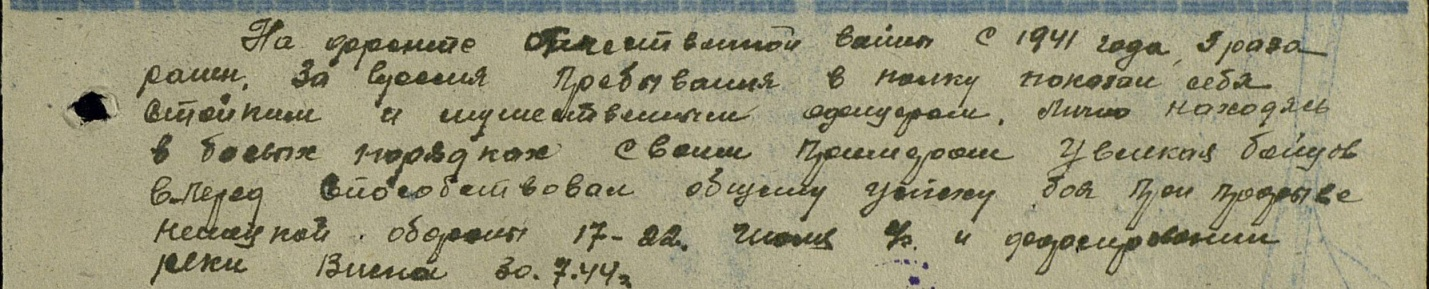 На фронте Отечественной войны с 1941 года, 3 раза
ранен. За время пребывания в полку показал себя
стойким и мужественным офицером. Лично находясь
в боевых порядках своим примером увлекая бойцов
вперед способствовал общему успеху боя при прорыве
немецкой обороны 17-22. июля с/г. и форсировании
реки Висла 30.7.44г.